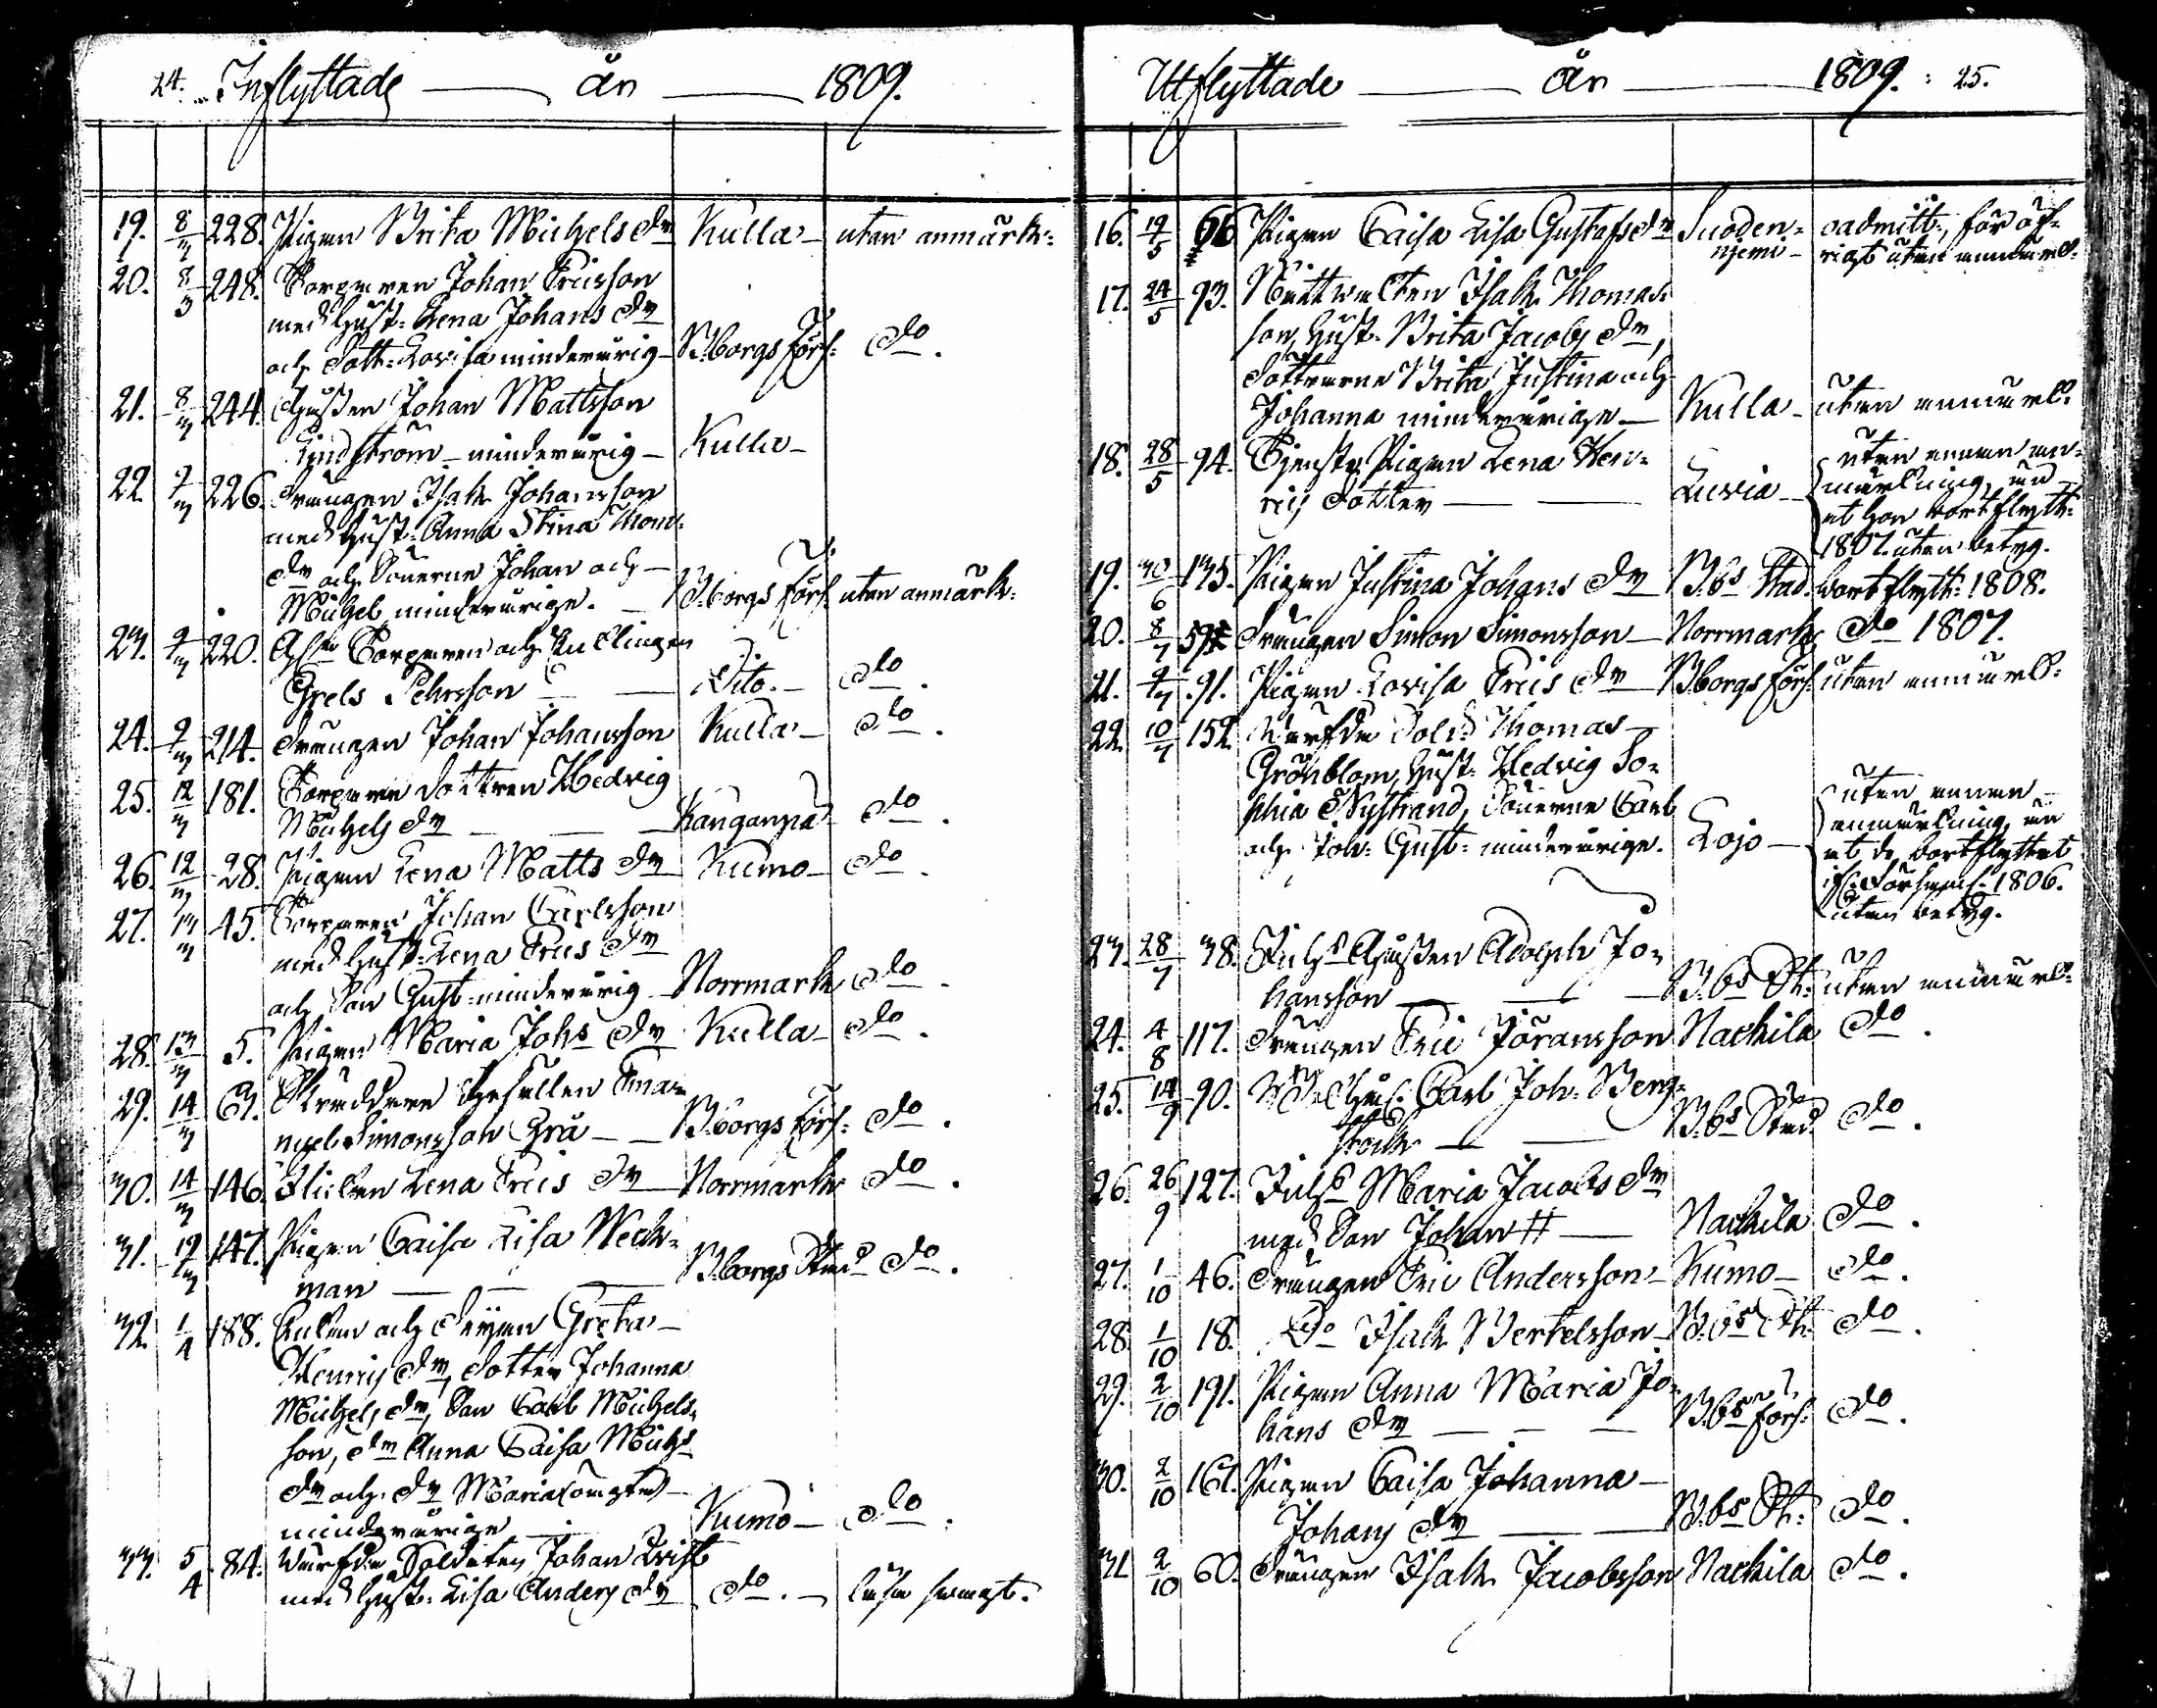 24. Inflyttade — år — 1809.
19. 8/3 228. Pigan Brita Michels dr Kulla — utan anmärk:
20. 8/3 248. Torparen Johan Ericsson
med Hust: Lena Johans dr
och Dott: Lovisa minderårig — B:borgs Förs: do.
21. 8/3 244. Gossen Johan Mattsson
Lindström — minderårig — Kulla —
22. 9/3 226. Drängen Isak Johansson
med Hust: Anna Stina Thom:
dr och Sönerne Johan och —
Michel minderårige. — B:borgs Förs: utan anmärk:
23. 9/3 220. Torparen och Enklingen
Grels Pehrsson — Dito. — do.
24. 9/3 214. Drängen Johan Johansson Kulla — do.
25. 12/3 181. Torpare Dottren Hedvig
Michels dr — Kanganpä do.
26. 12/3 28. Pigan Lena Matts dr Kumo — do.
27. 13/3 45. Torparen Johan Carlsson
med Hust: Lena Erics dr
och Son Gust: minderårig — Norrmark do.
28. 13/3 5. Pigan Maria Johs dr Kulla — do.
29. 14/3 63. Skräddare Gesällen Ema-
nuel Simonsson Grå — B:borgs Förs: do.
30. 14/3 146. Flickan Lena Erics dr — Norrmark do.
31. 19/3 147. Pigan Caisa Lisa Weck-
man — B:borgs Stad do.
32. 1/4 188. Enkan och Greta —
Henrics dr, Dotter Johanna
Michels dr, Son Carl Michels-
son, dr Anna Caisa Michs
dr och dr Maria
minderårige — Kumo — do.
33. 5/4 84. Värfde Soldaten Johan Qvist
med Hust: Lisa Anders dr do. — läsa svagt.
Utflyttade — år — 1809. 25.
16. 19/5 66 Pigan Caisa Lisa Gustafs dr Suoden- oadmitt:, för öf-
niemi — rigt utan anmärk:
17. 24/5 93. Isak Thomas-
son, Hust: Brita Jacobs dr,
Döttrarne Brita Justina och
Johanna minderårige — Kulla — utan anmärk:
18. 28/5 94. Tjenste Pigan Lena Hen- utan annan an-
rics Dotter — Luvia — märkning, än
at hon bortflytt:
1807. utan betyg.
19. 30/6 135. Pigan Justina Johans dr B:bs Stad. bortflytt: 1808.
20. 8/7 59 Drängen Simon Simonsson — Norrmark do 1807.
21. 9/7 91. Pigan Lovisa Erics dr B:borgs Förs: utan anmärk:
22. 10/7 152. Värfde Sold: Thomas —
Grönblom, Hust: Hedvig So-
phia Nystrand, Sönerne Carl utan annan
och Joh: Gust: minderårige. Lojo — anmärkning, än
at de bortflyttat
1806.
utan betyg.
23. 28/7 38. Gossen Adolph Jo-
hansson — B:bs St: utan anmärk:
24. 4/8 117. Drängen Eric Jöransson Nackila do.
25. 14/9 90. Carl Joh: Berg-
B:bs Stad. do.
26. 26/9 127. Maria Jacobs dr
med Son Johan # — Nackila do.
27. 1/10 46. Drängen Eric Andersson — Kumo — do.
28. 1/10 18. Do Isak Bertelsson — B:bs St: do.
29. 2/10 191. Pigan Anna Maria Jo-
hans dr — B:bs Förs: do.
30. 2/10 161. Pigan Caisa Johanna —
Johans dr — B:bs St: do.
31 2/10 60. Drängen Isak Jacobsson Nackila do.